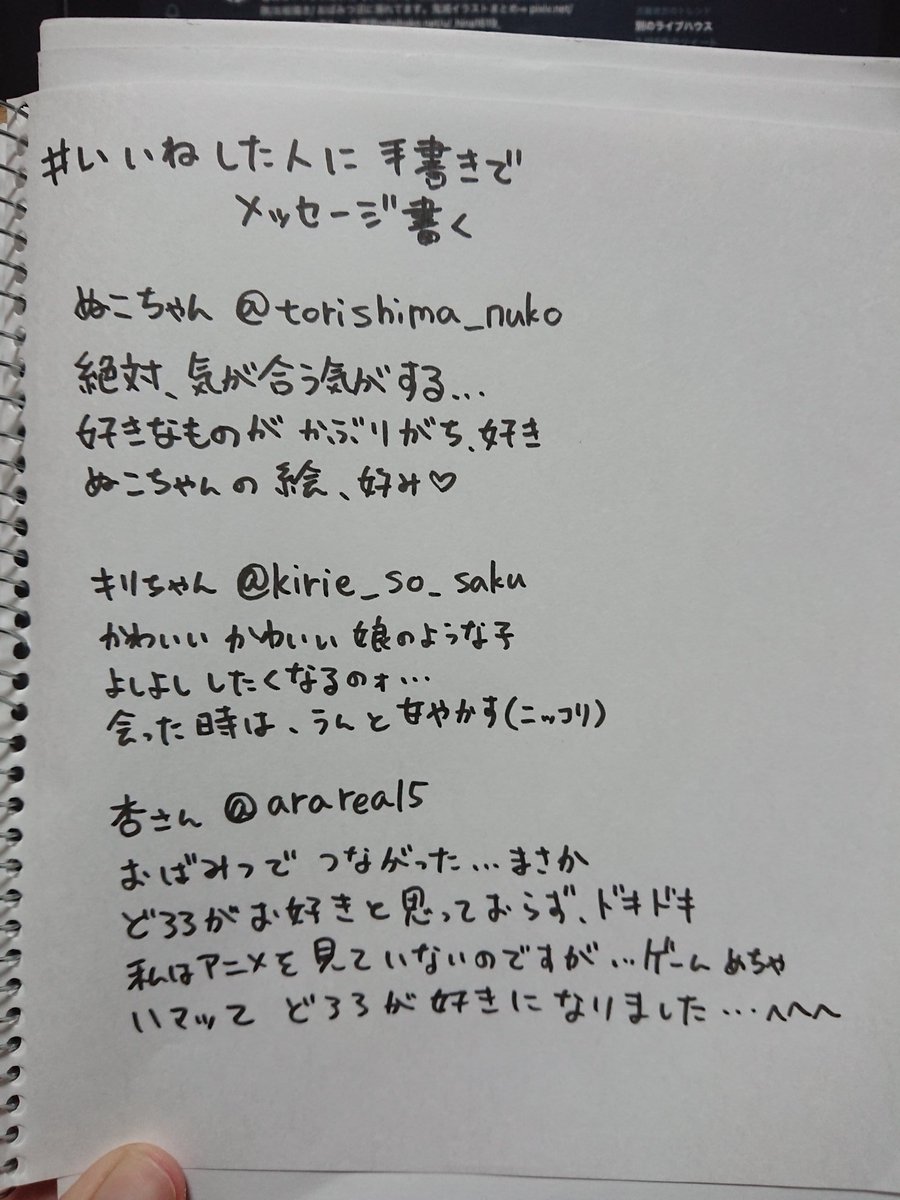 別のライブハウス
#いいねした人に手書きで
メッセージ書く
ぬこちゃん @torishima_nuko
絶対、気が合う気がする...
好きなものが かぶりがち、好き
ぬこちゃんの 絵、好み♡
キリちゃん @kirie_so_saku
かわいい かわいい 娘のような子
よしよし したくなるのォ...
会った時は、うんと甘やかす(ニッコリ)
杏さん @arareal5
おばみつで つながった...まさか
どろろがお好きと思っておらず、ドキドキ
私はアニメを見ていないのですが...ゲームめちゃ
ハマッて どろろが好きになりました...へへへ